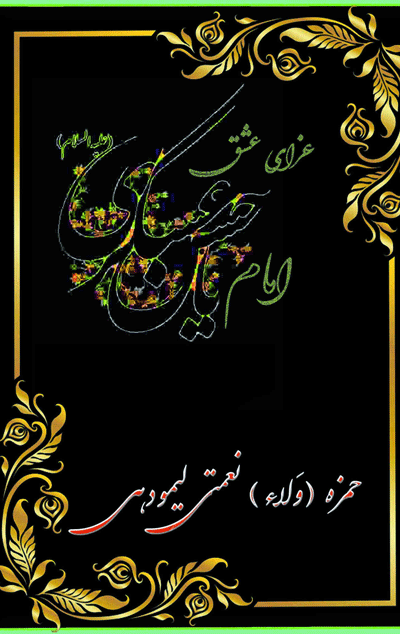 عزای عشق
امام
یا حسن عسکری
(علیه السلام)
حمزه (وَلاء) نعمتی لیمودهی